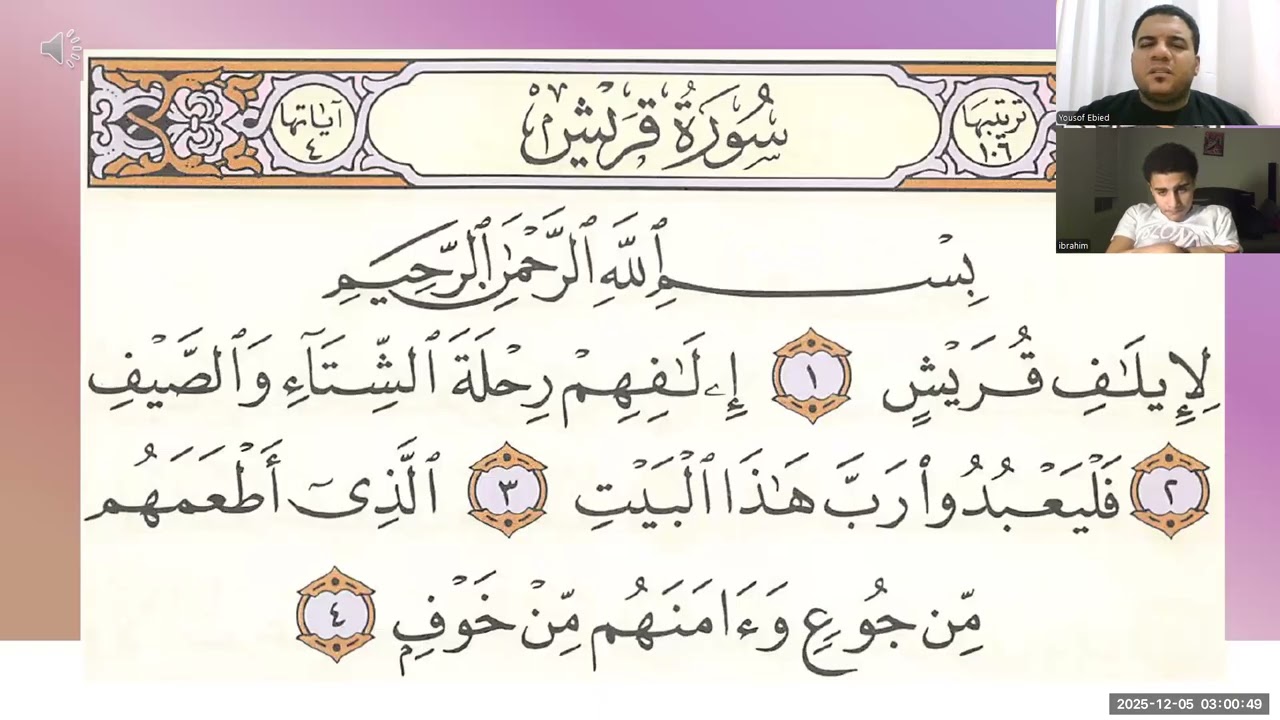 آياتها ٤
سُورَةُ قُرَيْشٍ
ترتيبها ١٠٦
بِسْمِ ٱللَّهِ ٱلرَّحْمَٰنِ ٱلرَّحِيمِ
لِإِيلَٰفِ قُرَيْشٍ ١ إِۦلَٰفِهِمْ رِحْلَةَ ٱلشِّتَآءِ وَٱلصَّيْفِ
٢ فَلْيَعْبُدُوا۟ رَبَّ هَٰذَا ٱلْبَيْتِ ٣ ٱلَّذِىٓ أَطْعَمَهُم
مِّن جُوعٍ وَءَامَنَهُم مِّنْ خَوْفٍۭ ٤
Yousof Ebied
ibrahim
2025-12-05 03:00:49